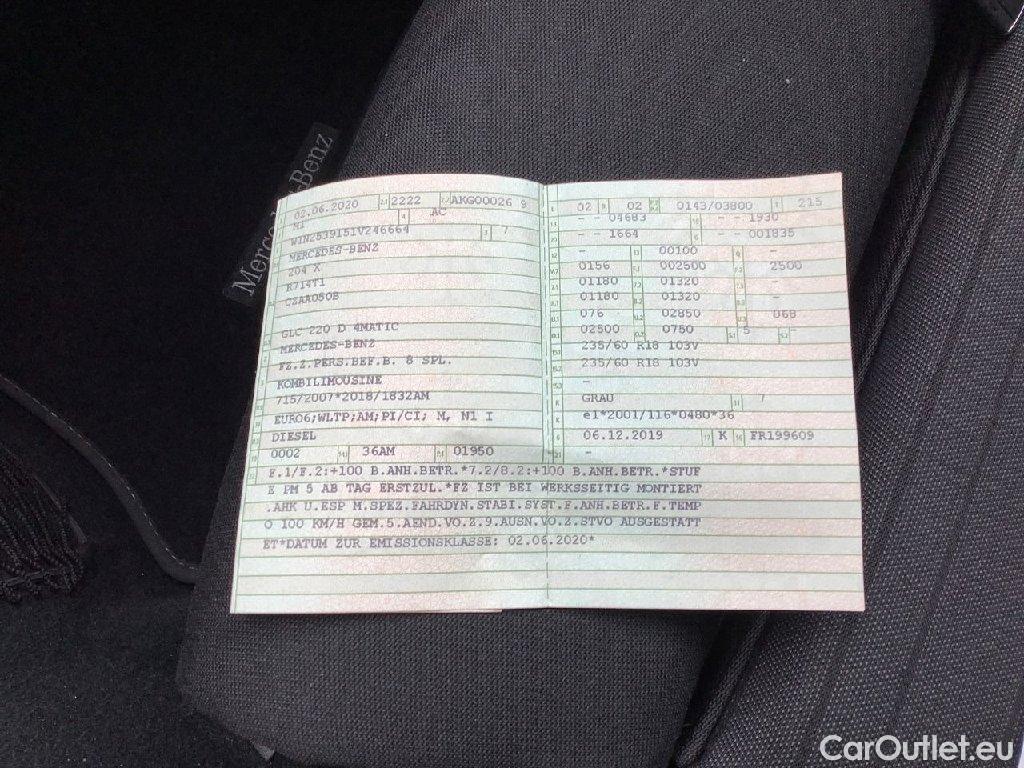 Mercedes-Benz
02.06.2020 2222 AKG00026 9
M1 AC
W1N2539151V246664 7
MERCEDES-BENZ
204 X
R714T1
CZAA050B
GLC 220 D 4MATIC
MERCEDES-BENZ
FZ.Z.PERS.BEF.B. 8 SPL.
KOMBILIMOUSINE
715/2007*2018/1832AM
EURO6;WLTP;AM;PI/CI; M, N1 I
DIESEL
0002 36AM 01950
02 02 0143/03800 215
- - 04683 - - 1930
- - 1664 - - 001835
- 00100 -
0156 002500 2500
01180 01320 -
01180 01320 -
076 02850 068
02500 0750 5 -
235/60 R18 103V
235/60 R18 103V
-
GRAU 7
e1*2001/116*0480*36
06.12.2019 K FR199609
-
F.1/F.2:+100 B.ANH.BETR.*7.2/8.2:+100 B.ANH.BETR.*STUF
E PM 5 AB TAG ERSTZUL.*FZ IST BEI WERKSSEITIG MONTIERT
.AHK U.ESP M.SPEZ.FAHRDYN.STABI.SYST.F.ANH.BETR.F.TEMP
O 100 KM/H GEM.5.AEND.VO.Z.9.AUSN.VO.Z.STVO AUSGESTATT
ET*DATUM ZUR EMISSIONSKLASSE: 02.06.2020*
CarOutlet.eu